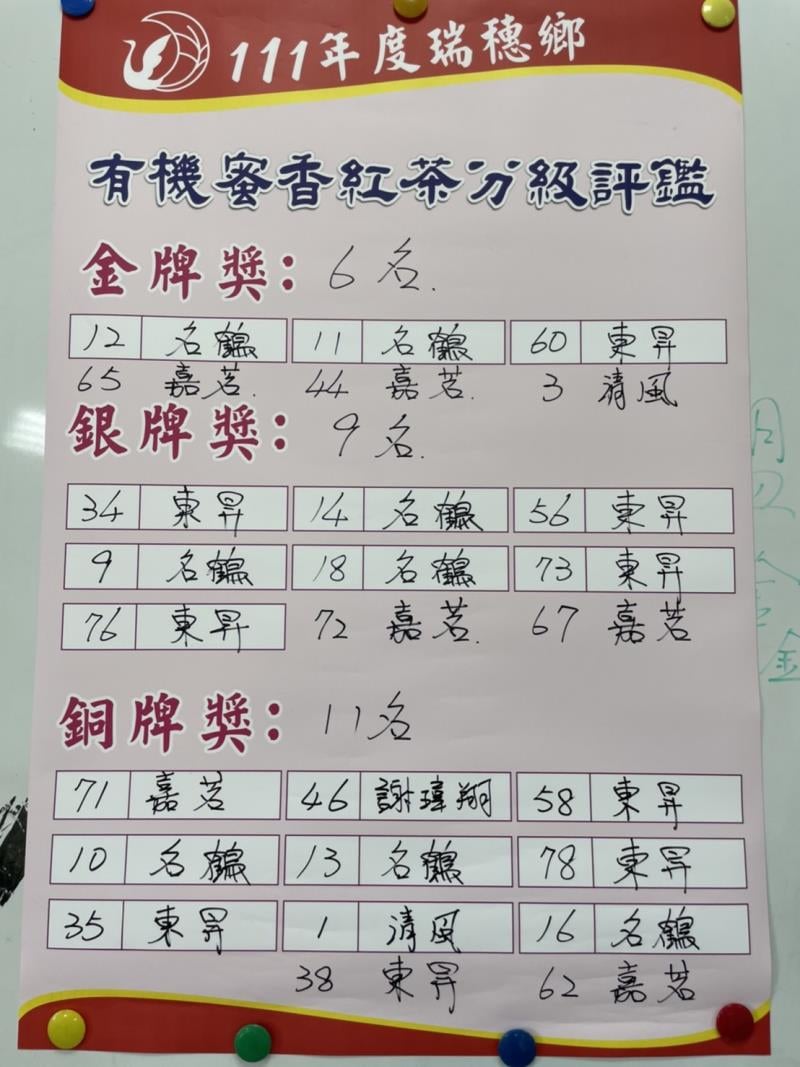 111年度瑞穗鄉
有機蜜香紅茶分級評鑑
金牌獎：6名.
12 名鶴 11 名鶴 60 東昇
65 嘉茗. 44 嘉茗. 3 清風
銀牌獎：9名.
34 東昇 14 名鶴 56 東昇
9 名鶴 18 名鶴 73 東昇
76 東昇 72 嘉茗. 67 嘉茗
銅牌獎：11名
71 嘉茗 46 謝瑋翔 58 東昇
10 名鶴 13 名鶴 78 東昇
35 東昇 1 清風 16 名鶴
38 東昇 62 嘉茗